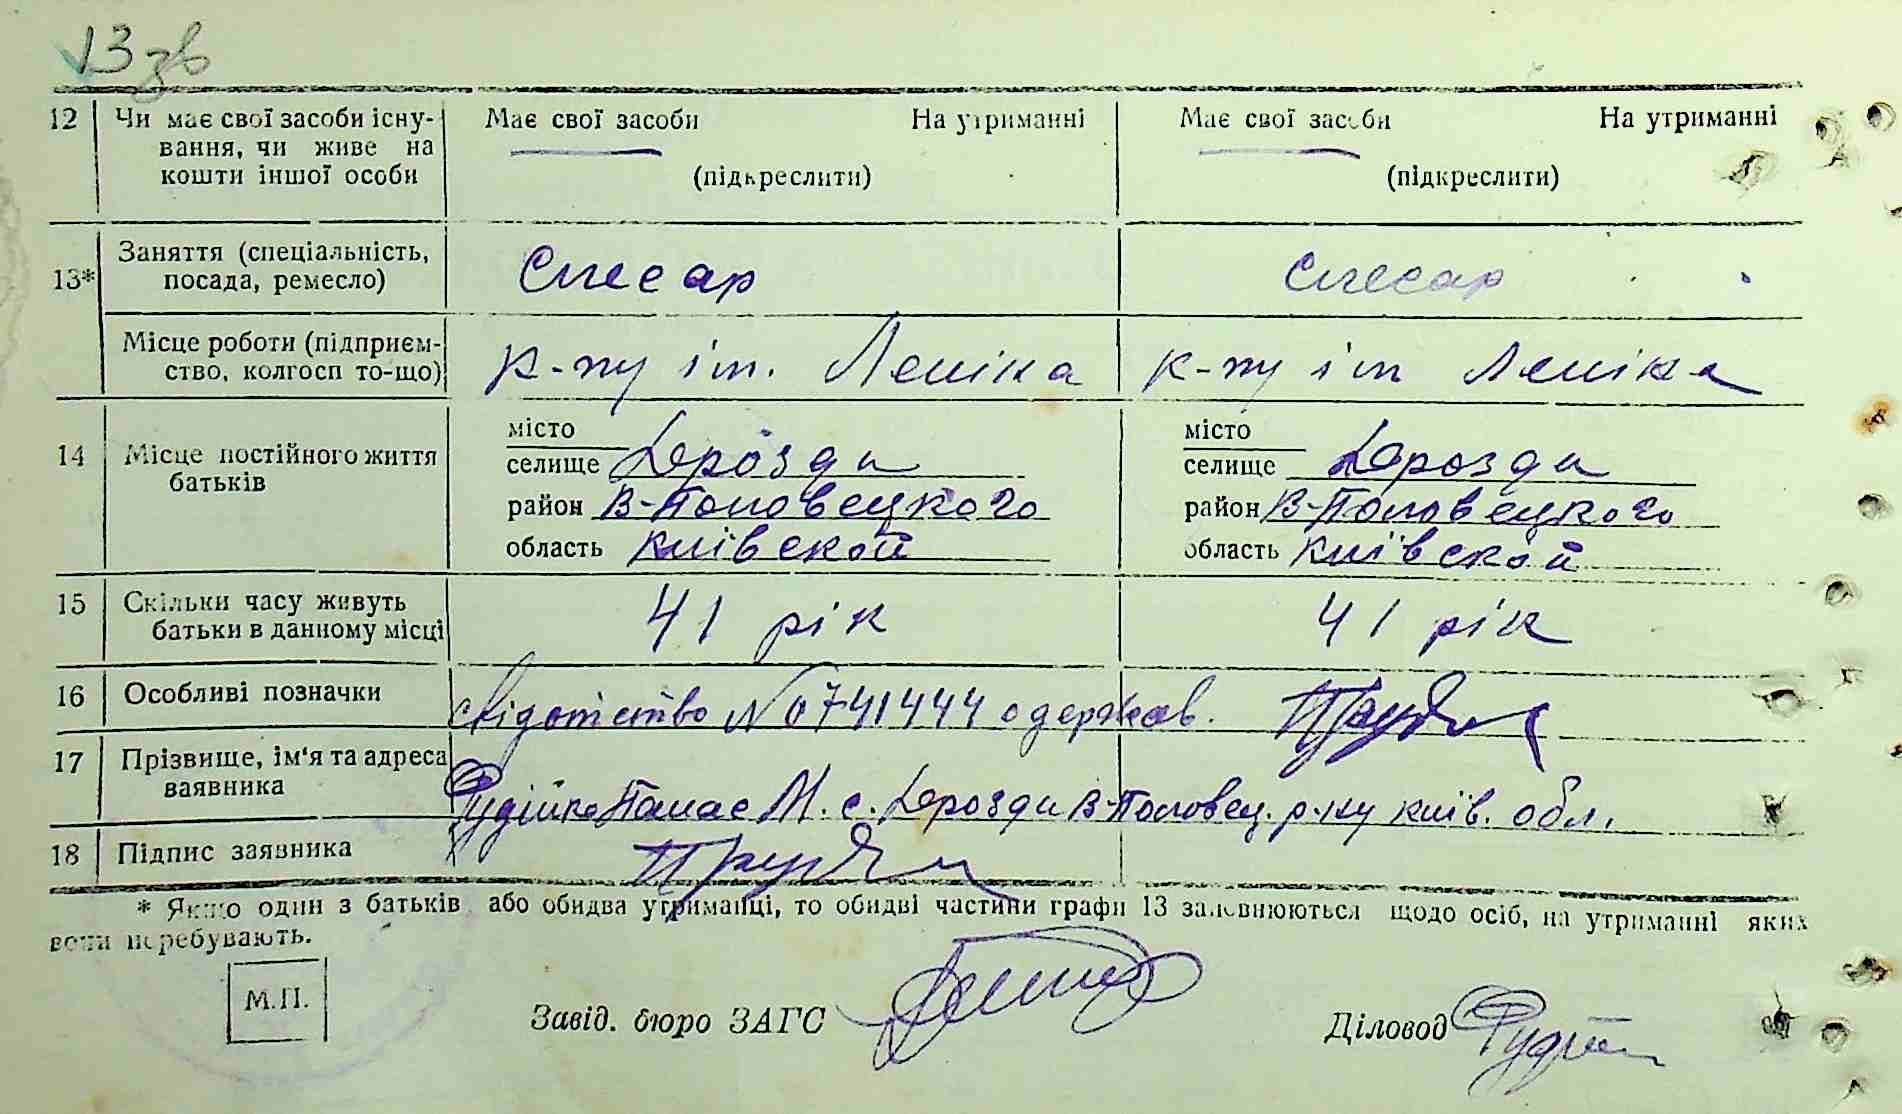 13 зв
12 Чи має свої засоби існу- Має свої засоби На утриманні Має свої засоби На утриманні
вання, чи живе на
кошти іншої особи (підкреслити) (підкреслити)
Заняття (спеціальність,
13* посада, ремесло) Слесар Слесар
Місце роботи (підприєм-
ство, колгосп то-що) к-пу ім. Леніна к-пу ім Леніна
місто місто
14 Місце постійного життя селище Дрозди селище Дрозди
батьків район В-Половецкого район В-Половецкого
область Київской область Київской
15 Скільки часу живуть
батьки в данному місці 41 рік 41 рік
16 Особливі позначки свідотство №0741444 одержав.
17 Прізвище, ім'я та адреса
заявника Панас М. с. Дрозди В-Половец. р-ну Київ. обл.
18 Підпис заявника
* Якщо один з батьків або обидва утриманці, то обидві частини графи 13 заповнюються щодо осіб, на утриманні яких
вони перебувають.
М.П.
Завід. бюро ЗАГС Діловод